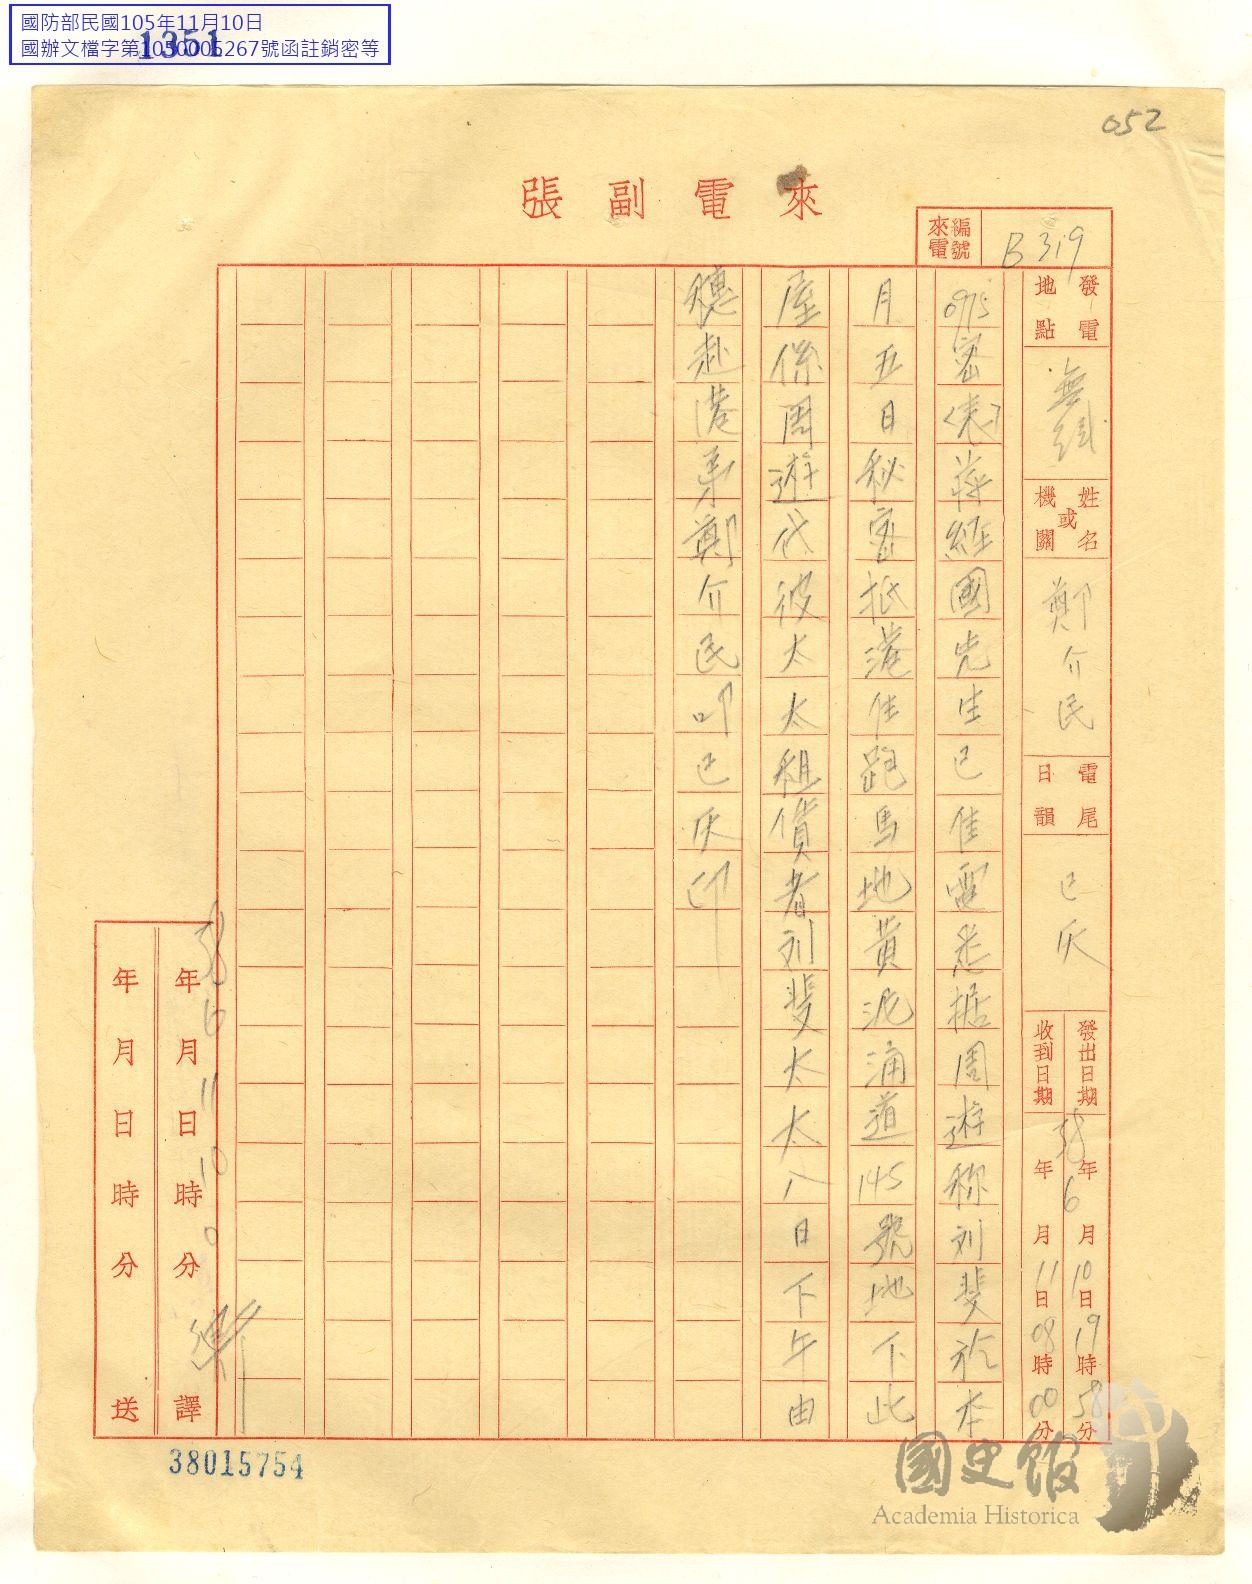 國防部民國105年11月10日
國辦文檔字第1050005267號函註銷密等
1351
052
來電副張
來電編號
B319
發電地點
無線
姓名或機關
鄭介民
電尾日韻
已灰
發出日期
38年6月10日19時58分
收到日期
年月11日08時00分
0975密(表)蔣經國先生已佳電悉據周遊称刘斐於本
月五日秘密抵港住跑馬地黃泥涌道145號地下此
屋係周遊代彼太太租賃者刘斐太太八日下午由
穗赴港弟鄭介民叩已灰印
38年6月11日10時0分譯
年月日時分送
38015754
國史館
Academia Historica